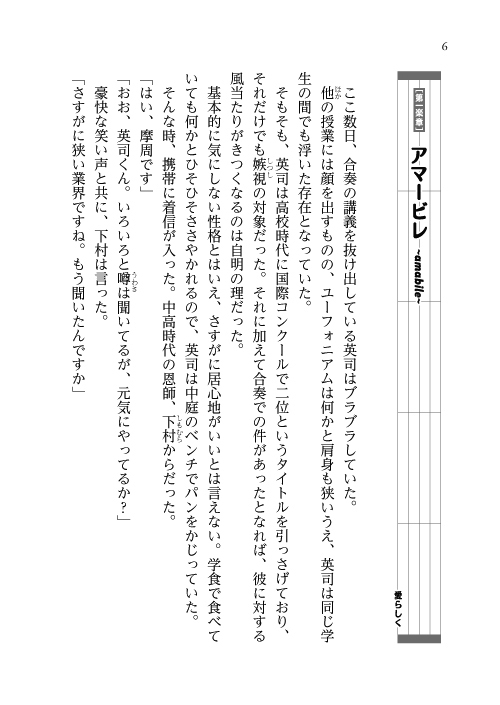 6
【第二楽章】
アマービレ
~amabile~
愛らしく
ここ数日、合奏の講義を抜け出している英司はブラブラしていた。
他の授業には顔を出すものの、ユーフォニアムは何かと肩身も狭いうえ、英司は同じ学
生の間でも浮いた存在となっていた。
そもそも、英司は高校時代に国際コンクールで二位というタイトルを引っさげており、
それだけでも嫉視の対象だった。それに加えて合奏での件があったとなれば、彼に対する
風当たりがきつくなるのは自明の理だった。
基本的に気にしない性格とはいえ、さすがに居心地がいいとは言えない。学食で食べて
いても何かとひそひそささやかれるので、英司は中庭のベンチでパンをかじっていた。
そんな時、携帯に着信が入った。中高時代の恩師、下村からだった。
「はい、摩周です」
「おお、英司くん。いろいろと噂は聞いてるが、元気にやってるか?」
豪快な笑い声と共に、下村は言った。
「さすがに狭い業界ですね。もう聞いたんですか」